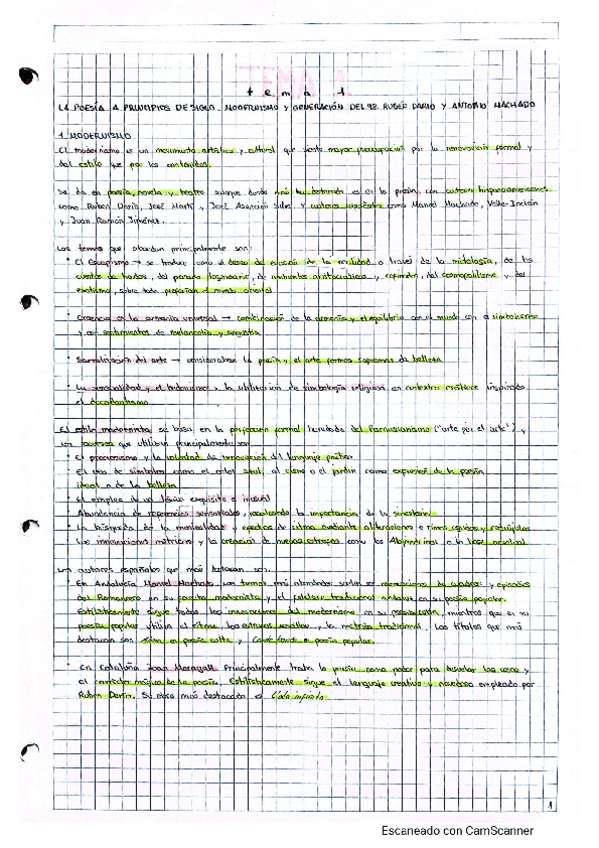 TEMA 1
tema 1
LA POESÍA A PRINCIPIOS DE SIGLO. MODERNISMO Y GENERACIÓN DEL 98. RUBÉN DARÍO Y ANTONIO MACHADO
1. MODERNISMO
El modernismo es un movimiento artístico y cultural que siente mayor preocupación por la renovación formal y
del estilo que por los contenidos.
Se da en poesía, novela y teatro, aunque donde más ha destacado es en la poesía, con autores hispanoamericanos
como Rubén Darío, José Martí, José Asunción Silva y autores españoles como Manuel Machado, Valle-Inclán
y Juan Ramón Jiménez.
Los temas que abordan principalmente son:
• El Escapismo → se traduce como el deseo de evasión de la realidad a través de la mitología, de los
cuentos de hadas, del pasado legendario, de ambientes aristocráticos y refinados, del cosmopolitismo y del
exotismo, sobre todo el mundo oriental
• Creencia en la armonía universal → combinación de la armonía y el equilibrio con el mundo con el simbolismo
y con sentimientos de melancolía y angustia
• Sacralización del arte → consideraban la poesía y el arte formas supremas de belleza
• La sensualidad y el erotismo, y la utilización de simbología religiosa en contextos eróticos inspirado
el decadentismo
El estilo modernista se basa en la perfección formal heredada del Parnasianismo ("arte por el arte"), y
los recursos que utilizan principalmente son
• El preciosismo y la voluntad de renovación del lenguaje poético
• El uso de símbolos como el color azul, el cisne o el jardín como expresión de la poesía
ideal o de la belleza
• El empleo de un léxico exquisito e inusual
• Abundancia de sensoriales, recalcando la importancia de la sinestesia.
• La búsqueda de la musicalidad y efectos de ritmo mediante aliteraciones e rimas agudas y
Las innovaciones métricas y la creación de nuevas estrofas como los Alejandrinos o la base
Los autores españoles que más destacan son:
• En Andalucía Manuel Machado. Los temas más abordados suelen ser de cuadros y episodios
del Romancero en su poesía modernista y el folclore tradicional andaluz en su poesía popular.
Estilísticamente sigue todas las innovaciones del modernismo en su poesía culta, mientras que en su
poesía popular utiliza el ritmo, las estrofas sencillas y la métrica tradicional. Los títulos que más
destacan son Alma en poesía culta y Cante hondo en poesía popular.
• En Cataluña Joan Maragall. Principalmente trata la poesía como poder para desvelar las cosas y
el carácter mágico de la poesía. Estilísticamente sigue el lenguaje creativo y novedoso empleado por
Rubén Darío. Su obra más destacada es
1
Escaneado con CamScanner